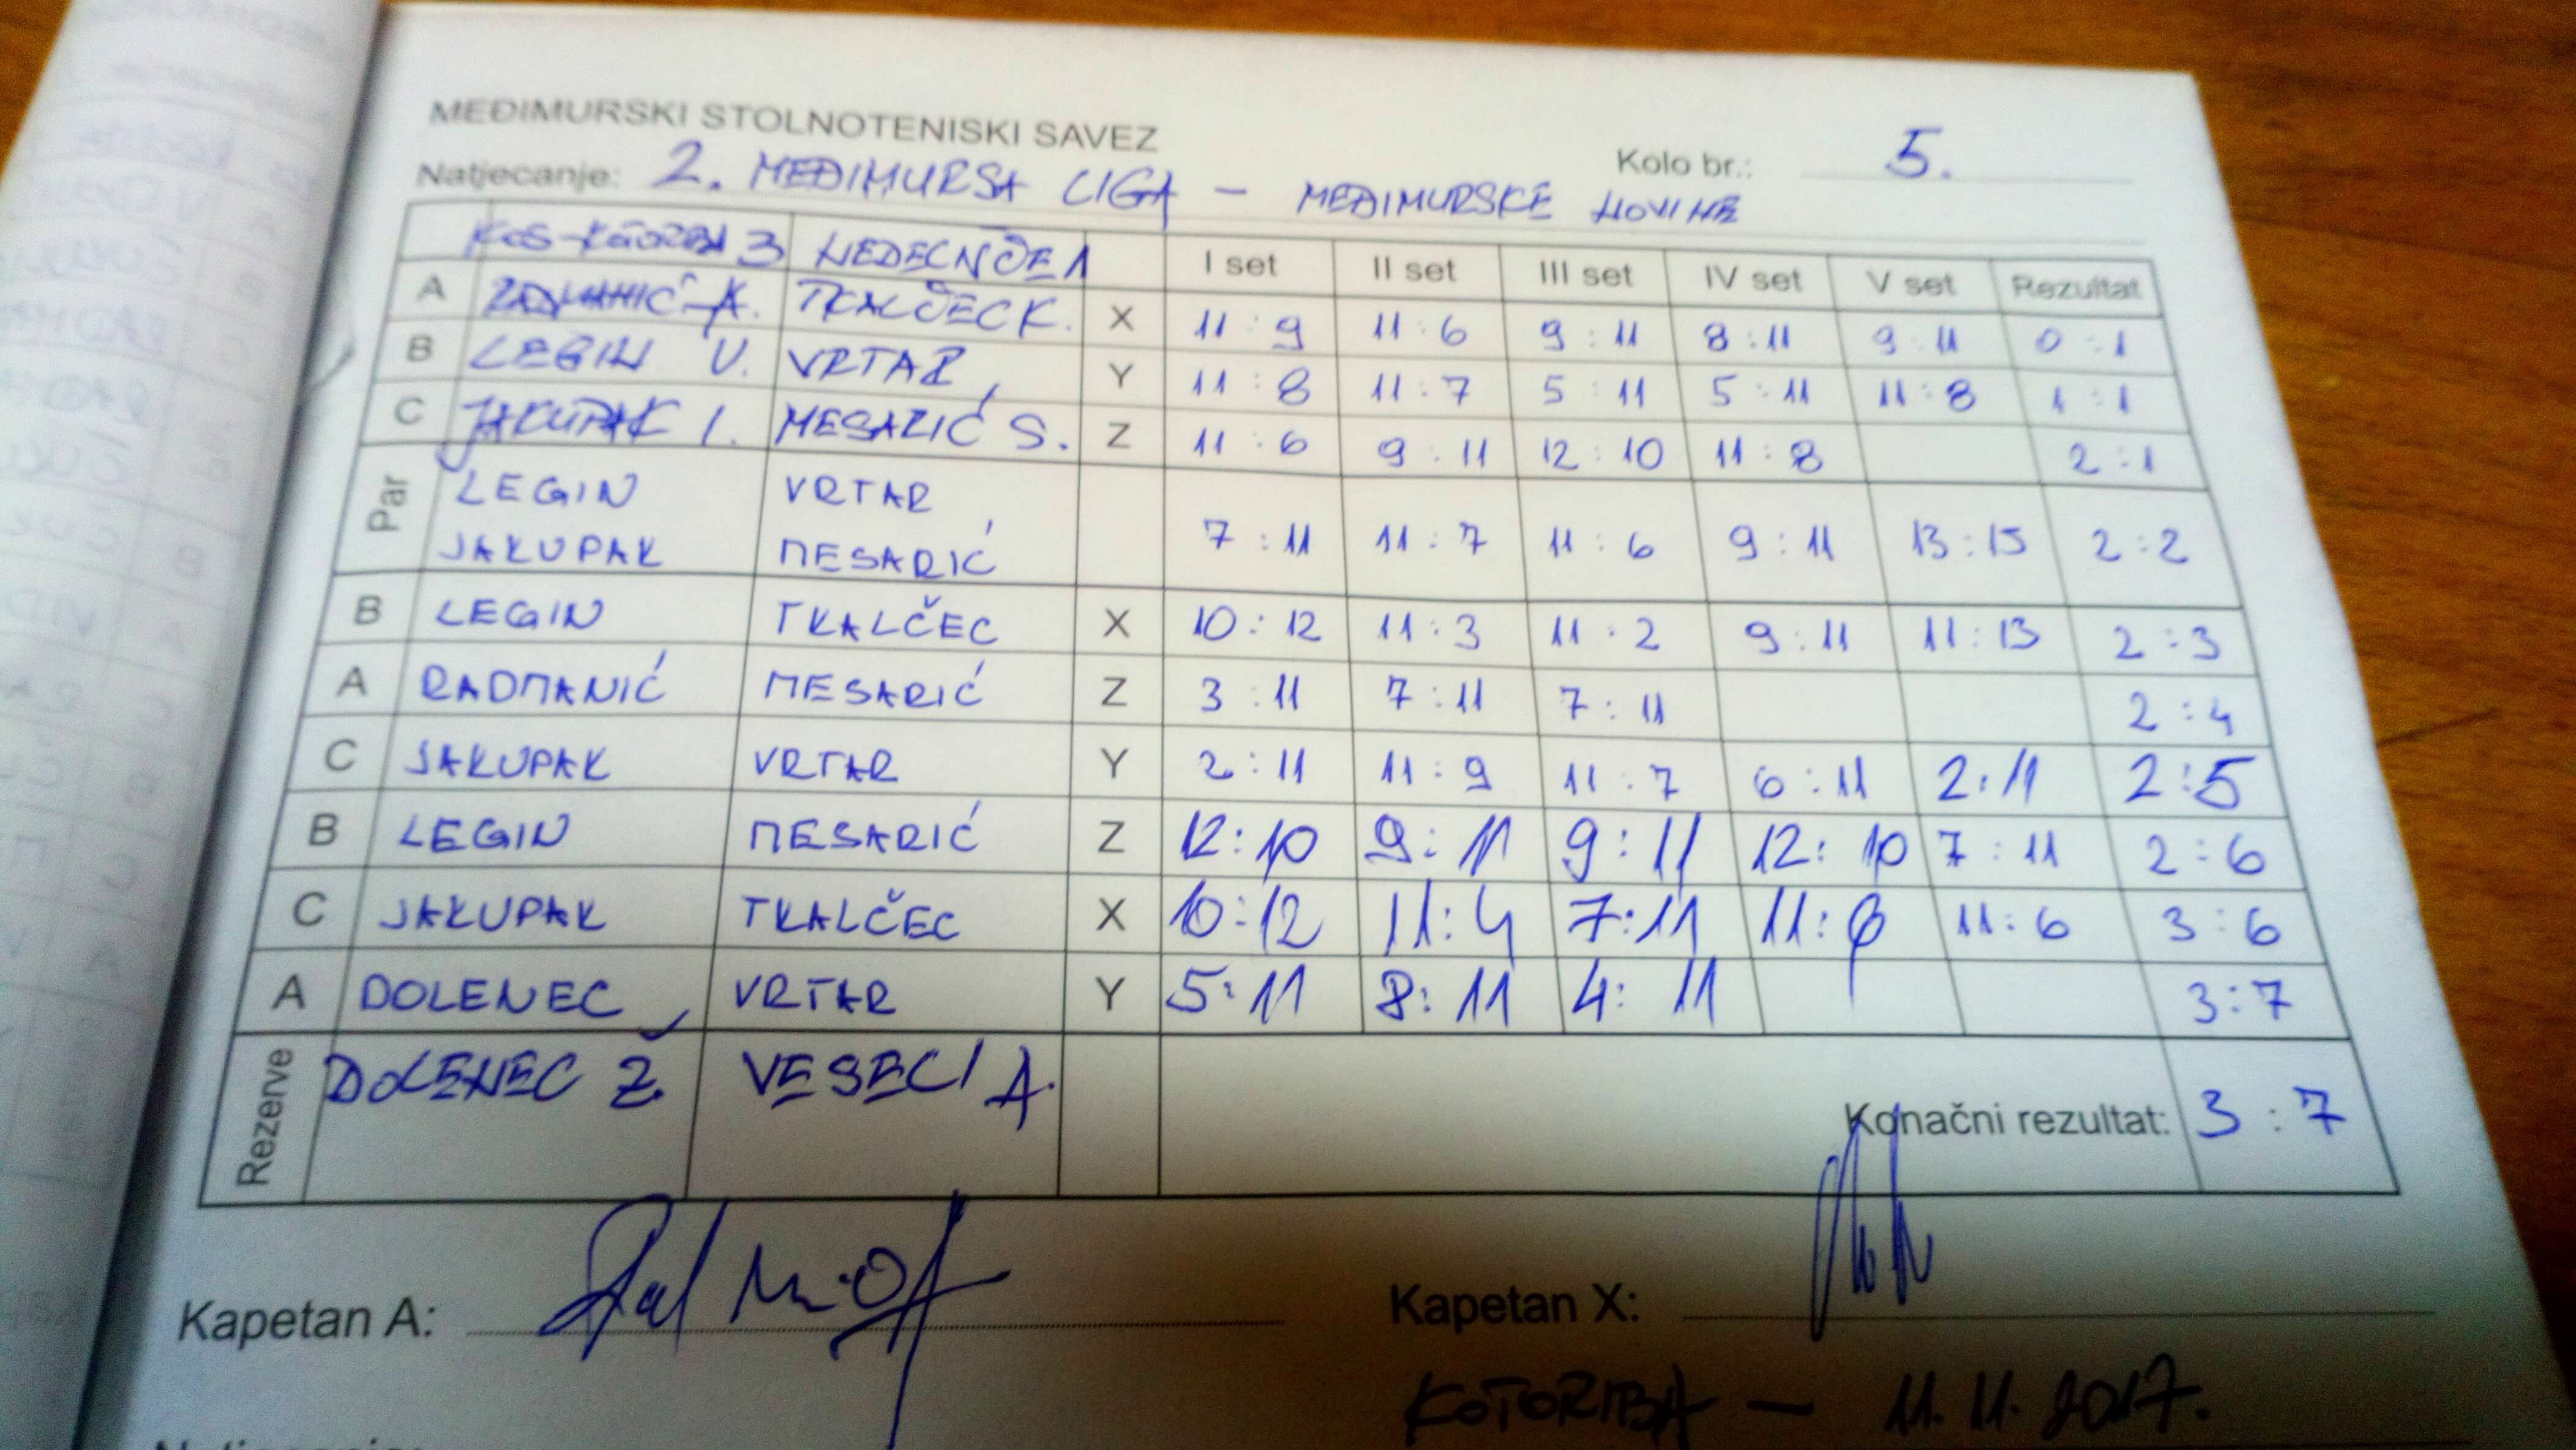 MEĐIMURSKI STOLNOTENISKI SAVEZ
Natjecanje: 2. MEĐIMURSA LIGA - MEĐIMURSKE NOVINE Kolo br.: 5.
KOS-KOTORBA 3 NEDELNŠĆE 1 I set II set III set IV set V set Rezultat
A RADMANIĆ A. TKALČEC K. X 11:9 11:6 9:11 8:11 9:11 0:1
B LEGIN V. VRTAR Y 11:8 11:7 5:11 5:11 11:8 1:1
C JAKUPAK I. MESARIĆ S. Z 11:6 9:11 12:10 11:8 2:1
Par LEGIN VRTAR
JAKUPAK MESARIĆ 7:11 11:7 11:6 9:11 13:15 2:2
B LEGIN TKALČEC X 10:12 11:3 11:2 9:11 11:13 2:3
A RADMANIĆ MESARIĆ Z 3:11 7:11 7:11 2:4
C JAKUPAK VRTAR Y 2:11 11:9 11:7 6:11 2:11 2:5
B LEGIN MESARIĆ Z 12:10 9:11 9:11 12:10 7:11 2:6
C JAKUPAK TKALČEC X 10:12 11:4 7:11 11:8 11:6 3:6
A DOLENEC VRTAR Y 5:11 8:11 4:11 3:7
Rezerve DOLENEC Ž. VESELI A.
Konačni rezultat: 3:7
Kapetan A: Kapetan X:
KOTORIBA - 11.11.2017.